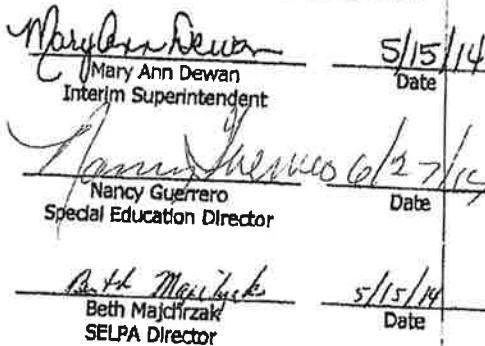 Mary Ann Dewan 5/15/14
Mary Ann Dewan Date
Interim Superintendent
Nancy Guerrero 6/27/14
Nancy Guerrero Date
Special Education Director
Beth Majchrzak 5/15/14
Beth Majchrzak Date
SELPA Director